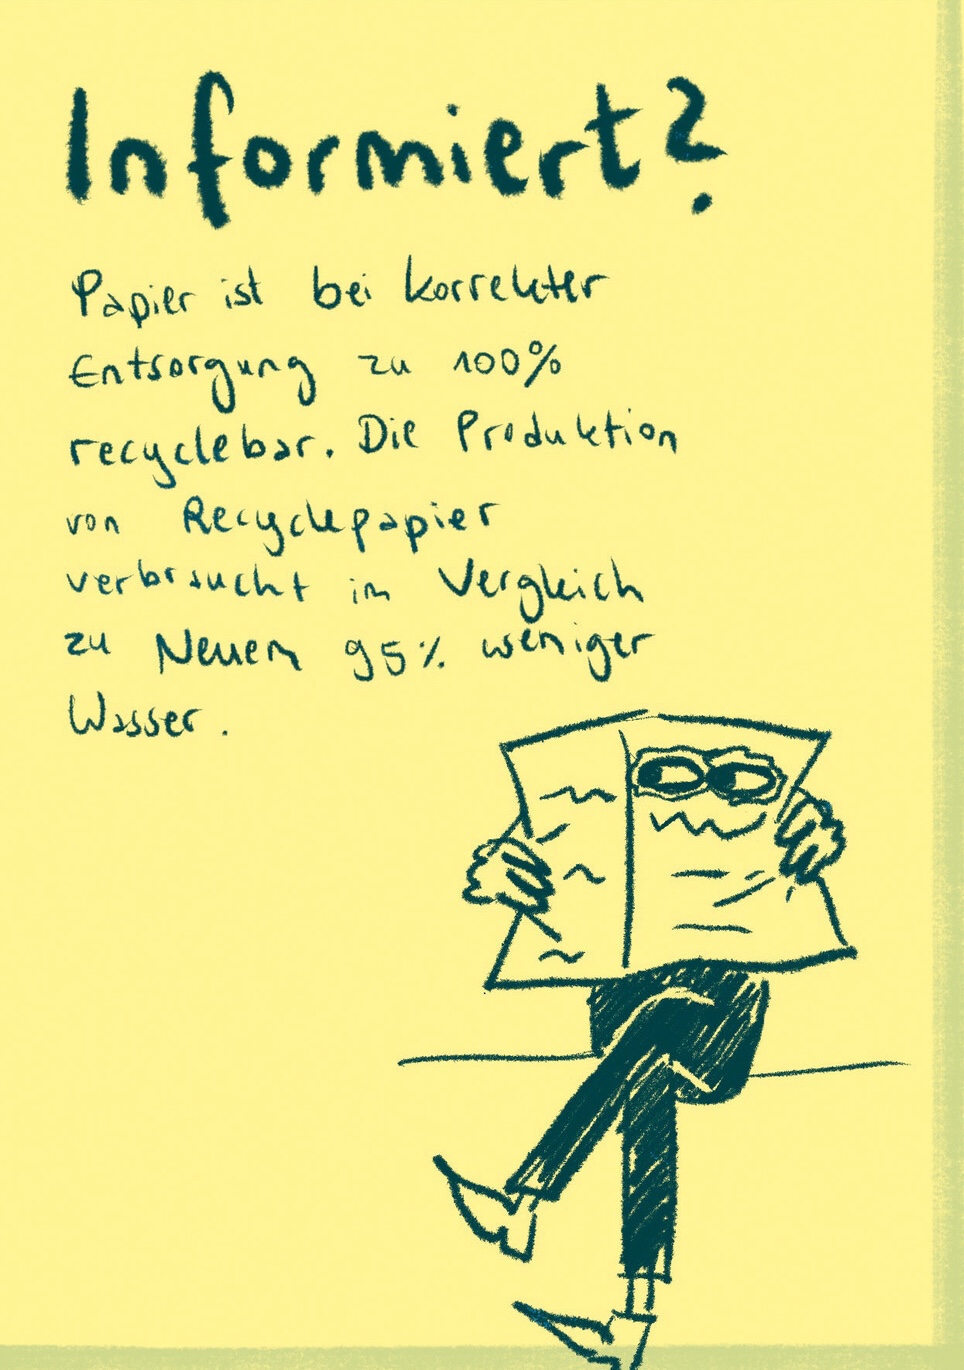 Informiert?
Papier ist bei korrekter
Entsorgung zu 100%
recyclebar. Die Produktion
von Recyclepapier
verbraucht im Vergleich
zu Neuem 95% weniger
Wasser.